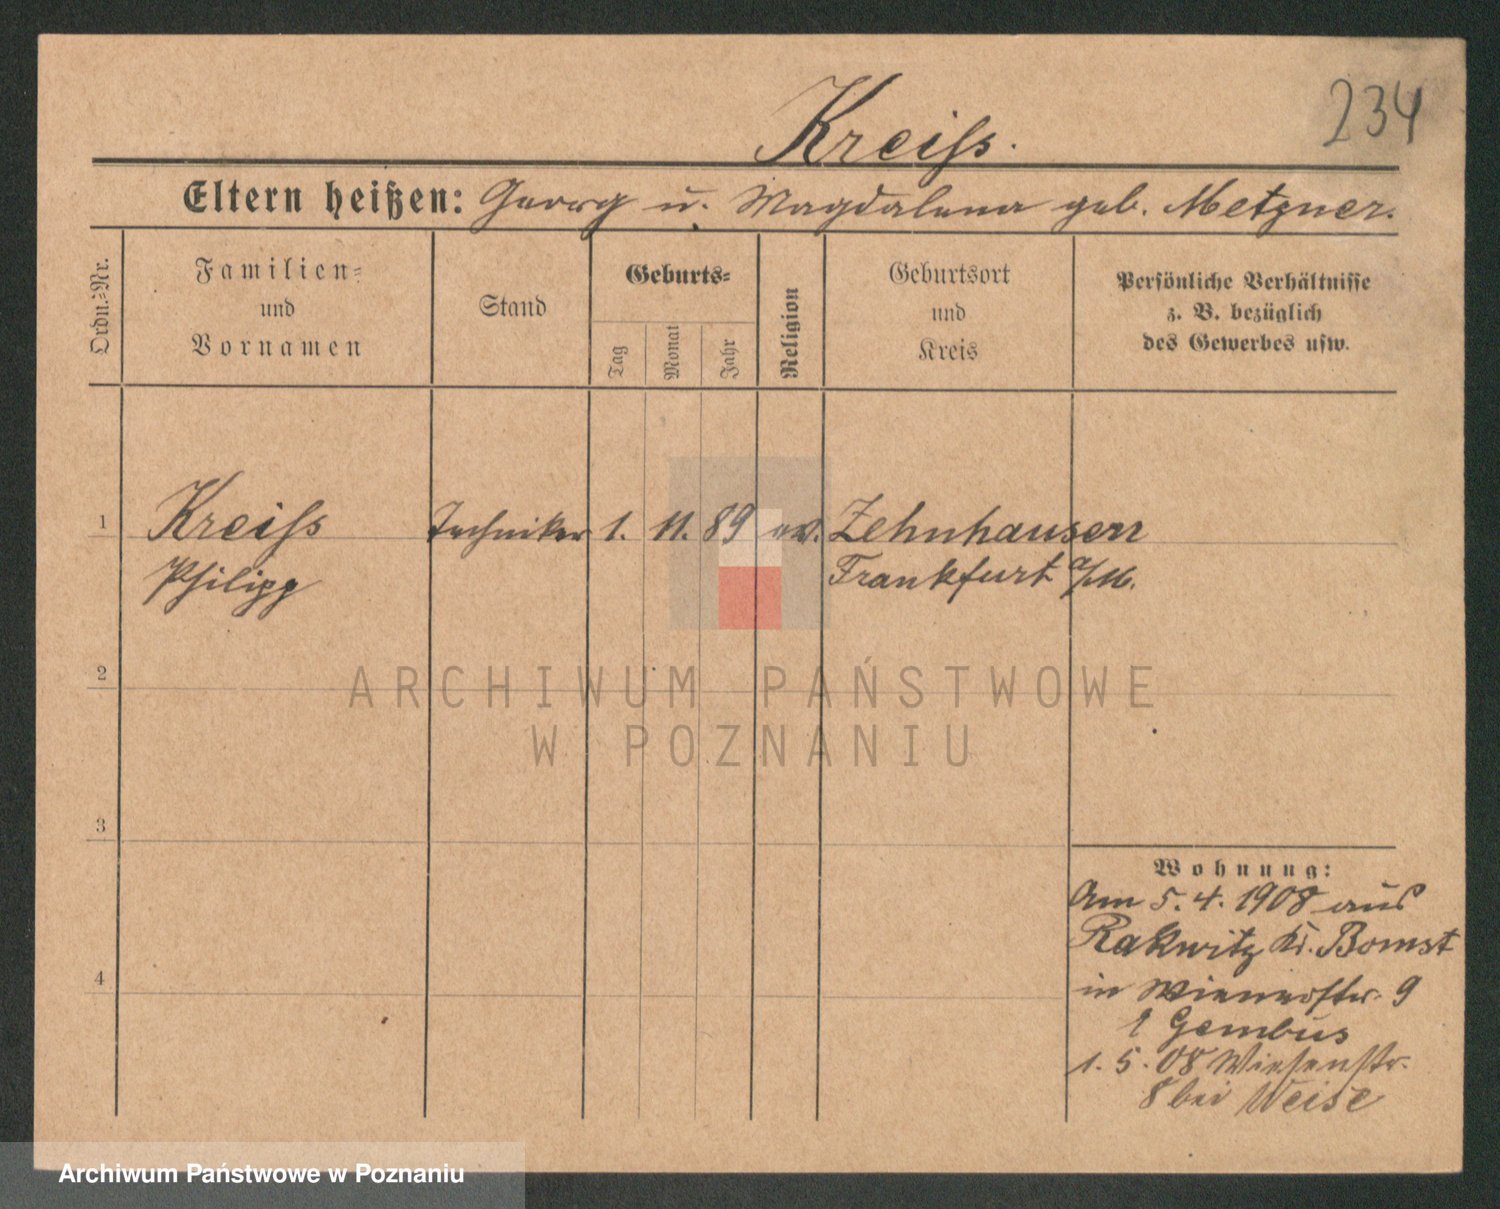 234
Kreiss.
Eltern heißen: Georg u. Magdalena geb. Metzner.
Ordn.=Nr.
Familien=
und
Vornamen
Stand
Geburts=
Tag
Monat
Jahr
Religion
Geburtsort
und
Kreis
Persönliche Verhältnisse
z. B. bezüglich
des Gewerbes usw.
1 Kreiss Techniker 1. 11. 89 ev. Zehnhausen
Philipp Frankfurt a/M.
2
ARCHIWUM PAŃSTWOWE
W POZNANIU
3
Wohnung:
Am 5. 4. 1908 aus
Rakwitz Kr. Bomst
in Wienerstr. 9
Gembus
1. 5. 08 Wiesenstr.
8 bei Weise
4
Archiwum Państwowe w Poznaniu